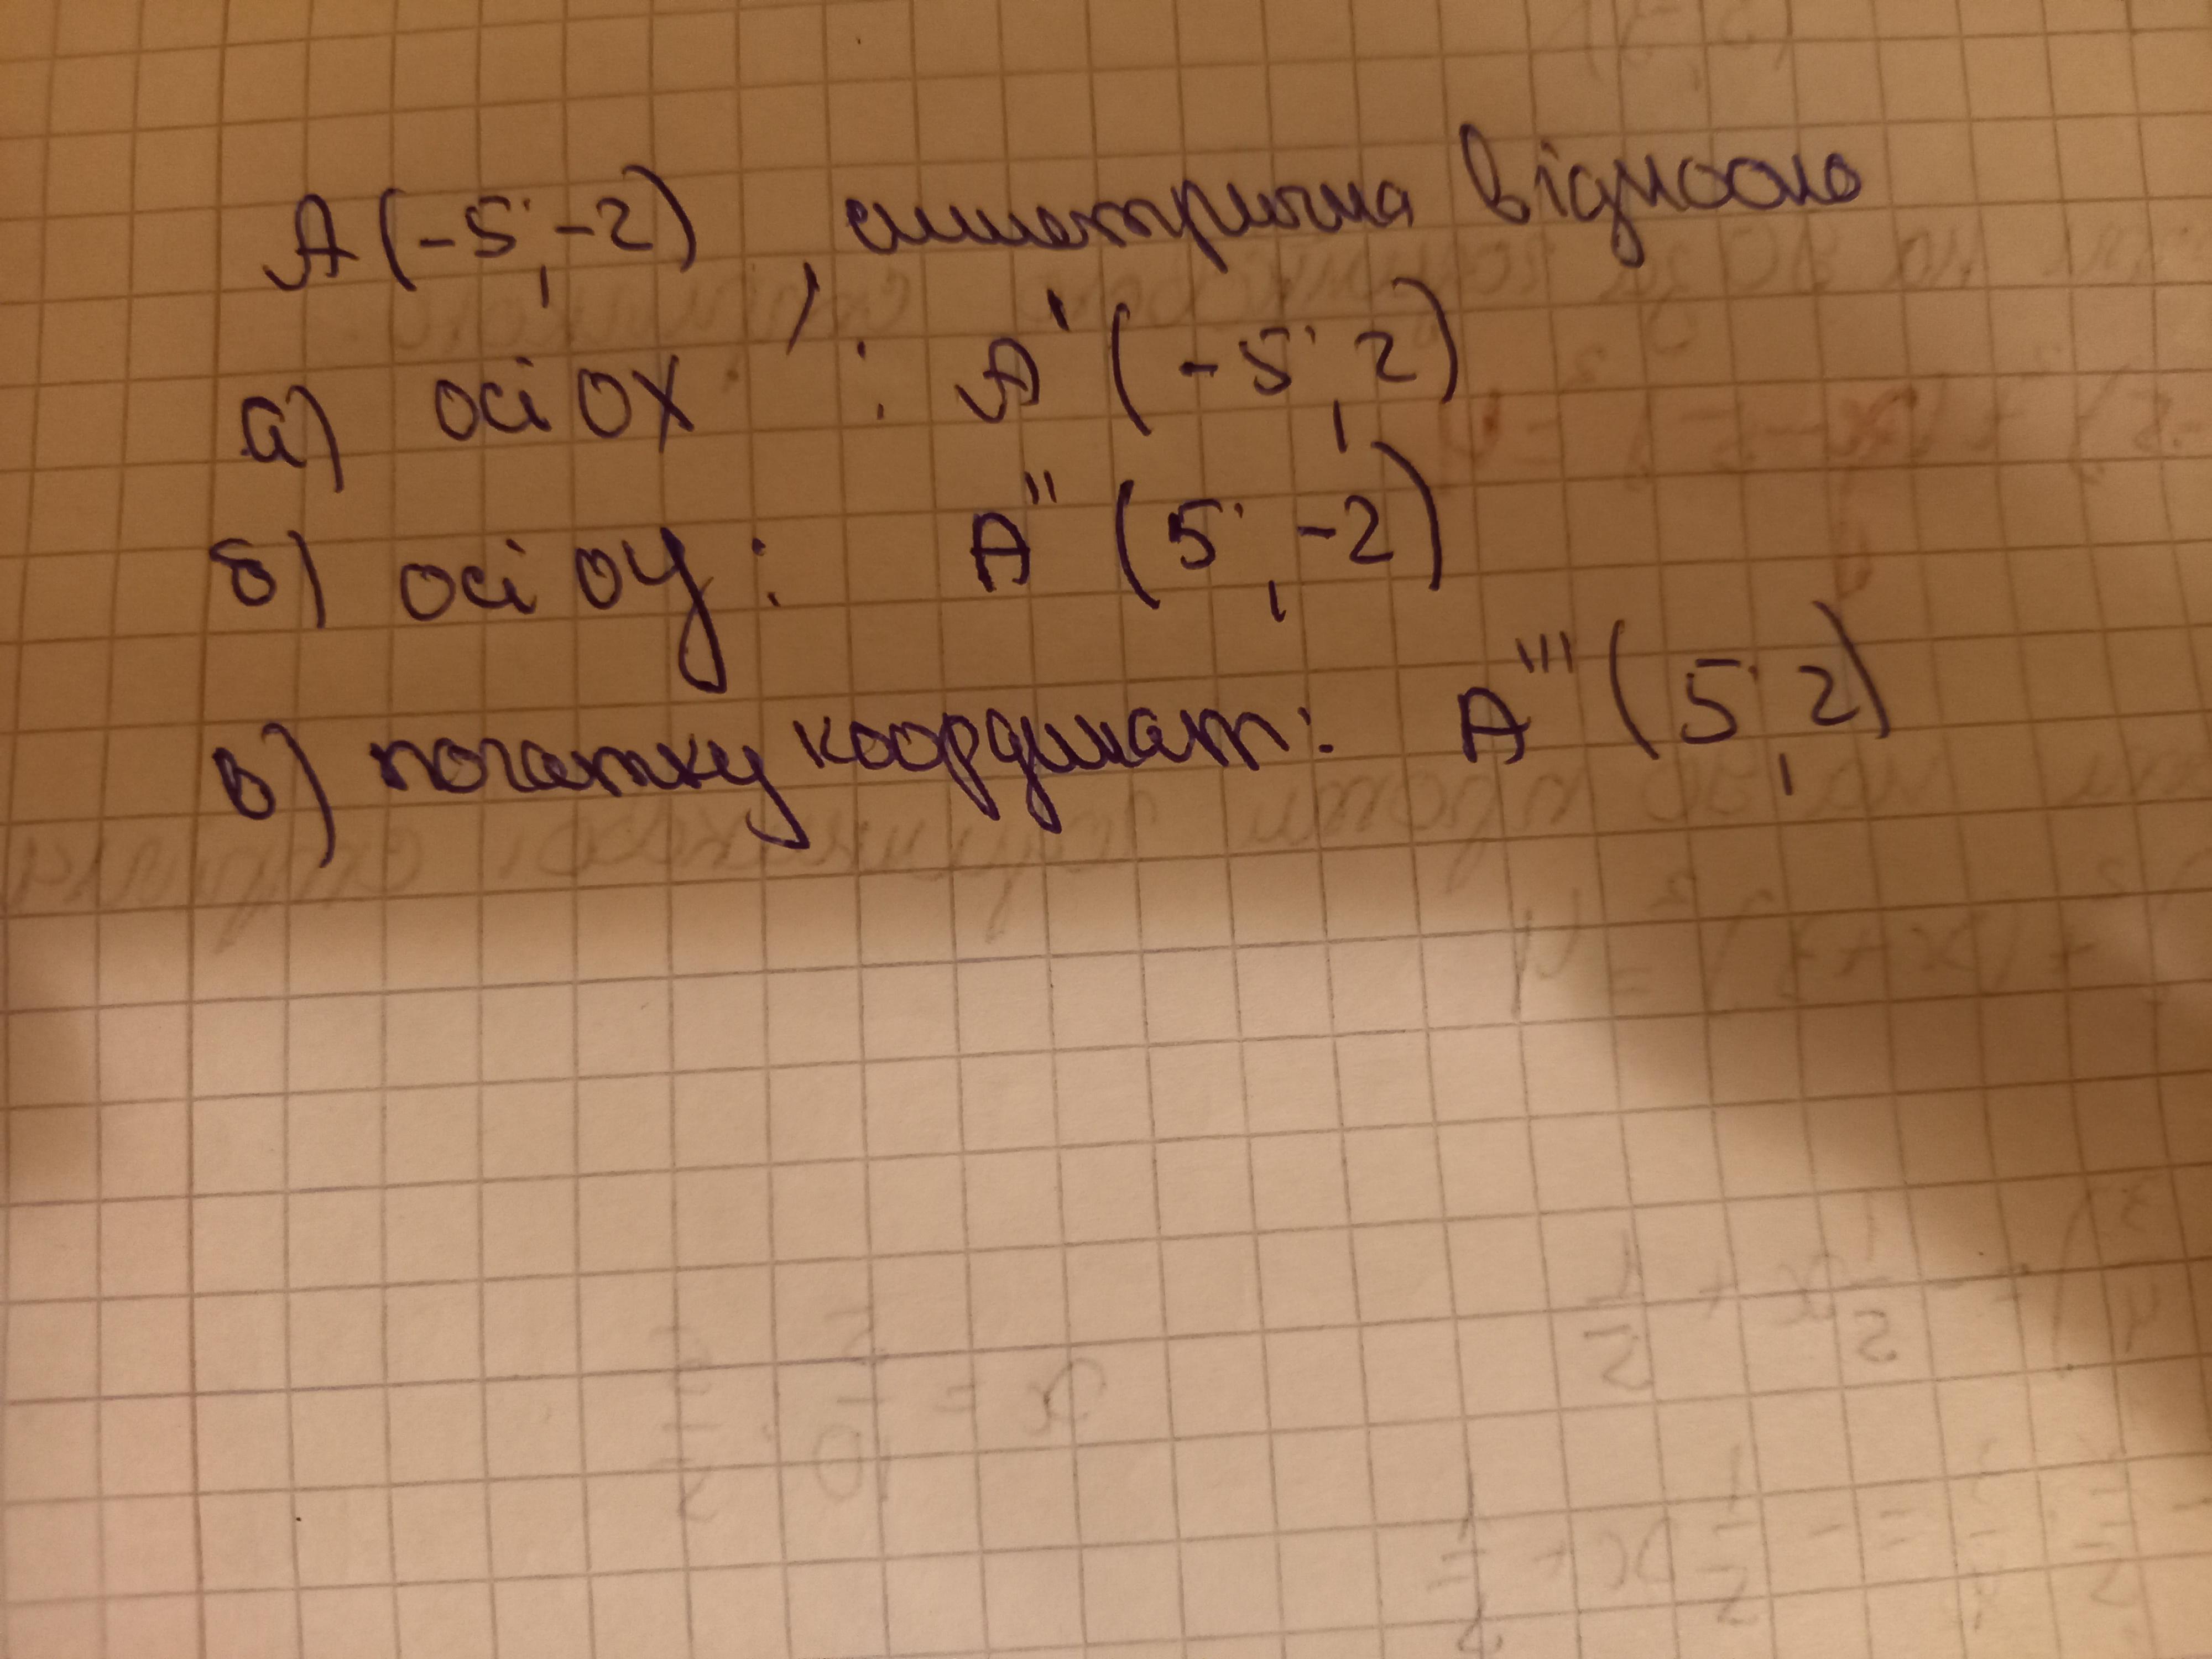 A(-5; -2), симетрична відносно
а) осі OX : A'(-5; 2)
б) осі OY: A''(5; -2)
в) початку координат: A'''(5; 2)